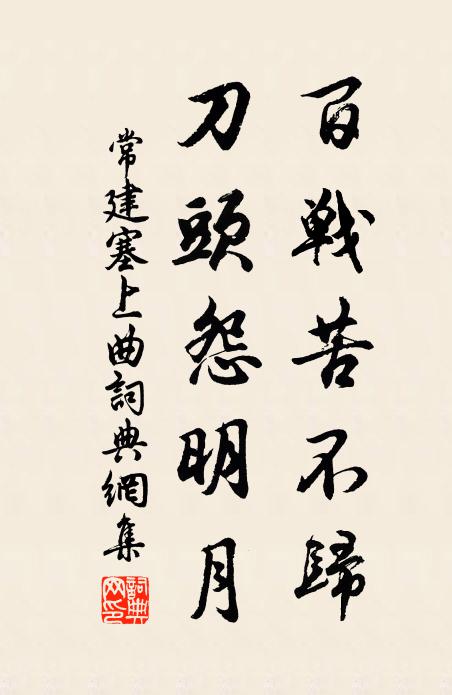 百戦苦不歸
刀頭怨明月
常建塞上曲詞典網集
詞典网印